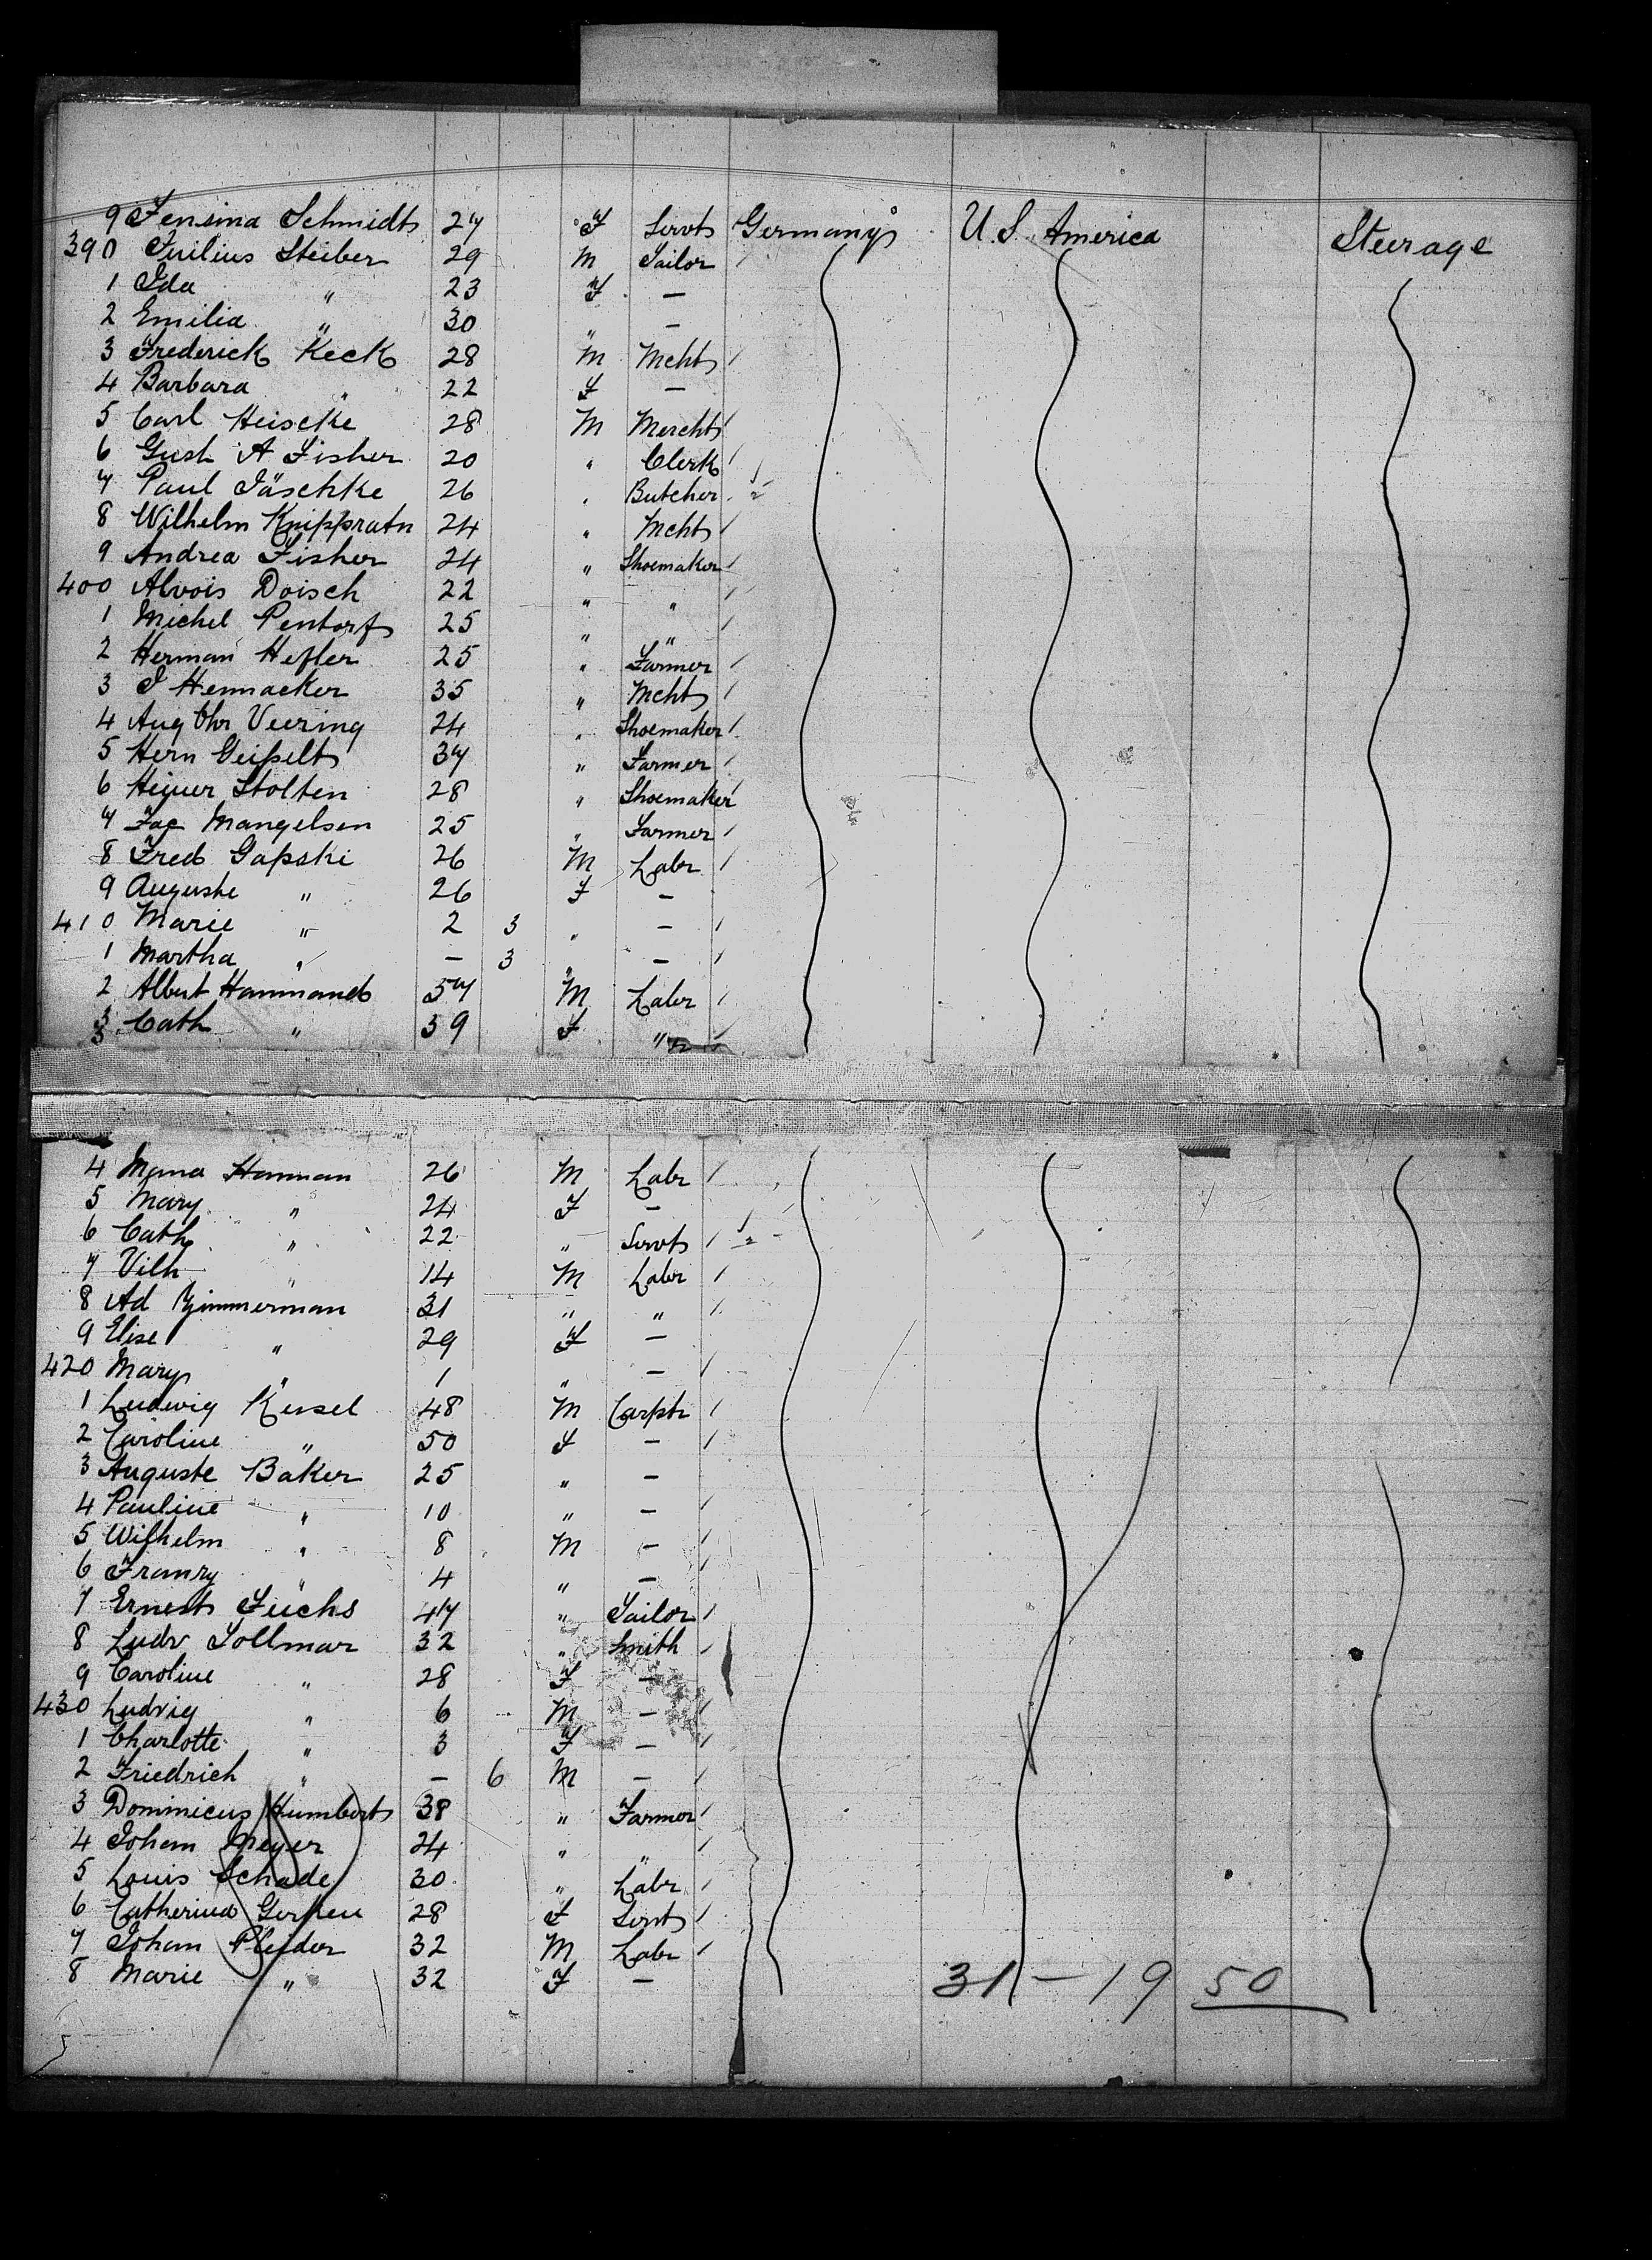 9 Jensina Schmidt 27 F Servt Germany U.S. America Steerage
390 Juilius Steiber 29 M Tailor
1 Ida " 23 F —
2 Emilia " 30 " —
3 Frederick Keck 28 M Mcht
4 Barbara " 22 F —
5 Carl Heiscke 28 M Mercht
6 Gust A Fisher 20 " Clerk
7 Paul Jäschke 26 " Butcher
8 Wilhelm Knippratn 24 " Mcht
9 Andrea Fisher 24 " Shoemaker
400 Alvois Doisch 22 " "
1 Michel Pentorf 25 " "
2 Herman Hefler 25 " Farmer
3 J Hennacker 35 " Mcht
4 Aug Chr Veering 24 " Shoemaker
5 Hern Geißelt 37 " Farmer
6 Heiner Stolten 28 " Shoemaker
7 Jac Mangelsen 25 " Farmer
8 Fred Gaßski 26 M Labr
9 Auguste " 26 F —
410 Marie " 2 3 " —
1 Martha " — 3 " —
2 Albert Hammand 57 M Labr
3 Cath " 39 F "
4 Mana Hannan 26 M Labr
5 Mary " 24 F —
6 Cath " 22 " Servt
7 Vilh " 14 M Labr
8 Ad Zimmerman 31 " "
9 Elise " 29 F —
420 Mary " 1 " —
1 Ludwig Kessel 48 M Carptr
2 Caroline " 50 F —
3 Auguste Baker 25 " —
4 Pauline " 10 " —
5 Wilhelm " 8 M —
6 Franz " 4 " —
7 Ernest Fuchs 47 " Tailor
8 Ludv Sollmar 32 " Smith
9 Caroline " 28 F —
430 Ludvig " 6 M —
1 Charlotte " 3 F —
2 Friedrich " — 6 M —
3 Dominicus Humbert 38 " Farmer
4 Joham Meyer 24 " "
5 Louis Schade 30 " Labr
6 Catherina Gerken 28 F Servt
7 Joham Pleider 32 M Labr
8 Marie " 32 F —
31 — 19 50